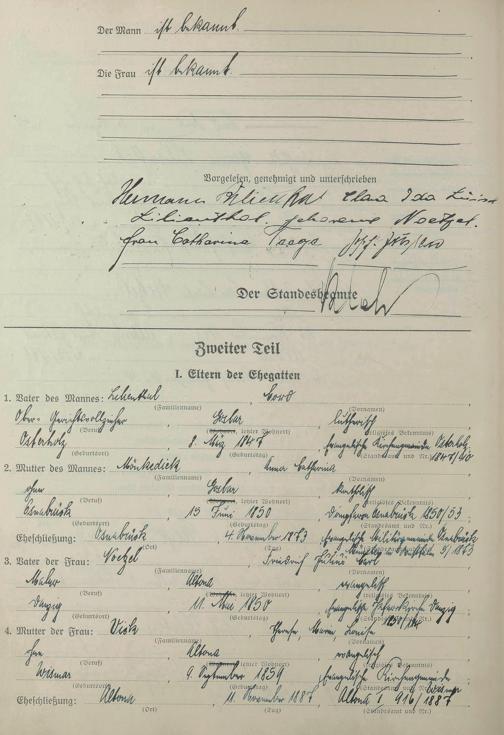 Der Mann ist bekannt.
Die Frau ist bekannt.
Vorgelesen, genehmigt und unterschrieben
Hermann Lilienthal Clara Ida Luise
Lilienthal, geborene Noetzel.
Frau Catharina
Der Standesbeamte
Zweiter Teil
I. Eltern der Ehegatten
1. Vater des Mannes: Lilienthal, Cord
(Familienname) (Vornamen)
Ober-Gerichtsvollzieher, Goslar, lutherisch
(Beruf) (Wohnort, letzter Wohnort) (religiöses Bekenntnis)
Osterholz, 1847, Evangelische Kirchengemeinde Osterholz
(Geburtsort) (Geburtstag) (Standesamt und Nr.) 1847/40
2. Mutter des Mannes: Mönkedieck, Anna Catharina
(Familienname) (Vornamen)
ohne, Goslar, katholisch
(Beruf) (Wohnort, letzter Wohnort) (religiöses Bekenntnis)
Osnabrück, 15 Juni 1850, Dompfarre Osnabrück 1850/53
(Geburtsort) (Geburtstag) (Standesamt und Nr.)
Eheschließung: Osnabrück, 4. November 1873, Evangelische Militärgemeinde Osnabrück
(Ort) (Tag) 3/1873
3. Vater der Frau: Noetzel, Friedrich Julius Carl
(Familienname) (Vornamen)
Maler, Altona, evangelisch
(Beruf) (Wohnort, letzter Wohnort) (religiöses Bekenntnis)
Danzig, 11. Mai 1850, Evangelische Danzig
(Geburtsort) (Geburtstag) (Standesamt und Nr.)
4. Mutter der Frau: Vick, Maria Louise
(Familienname) (Vornamen)
ohne, Altona, evangelisch
(Beruf) (Wohnort, letzter Wohnort) (religiöses Bekenntnis)
Wismar, 9. September 1859, Evangelische Kirchengemeinde
(Geburtsort) (Geburtstag) (Standesamt und Nr.) Wismar
Eheschließung: Altona, 11. November 1887, Altona I 916/1887
(Ort) (Tag) (Standesamt und Nr.)